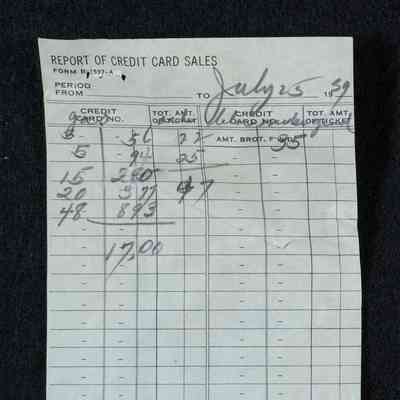 REPORT OF CREDIT CARD SALES
FORM R-1597-A
PERIOD
FROM TO July 25 1959
CREDIT CARD NO. TOT. AMT. OF TICKET CREDIT CARD NO. TOT. AMT. OF TICKET
3 56 22 AMT. BROT. F'WRD. 35
5 94 25
15 280
20 377 47
48 893
17,00